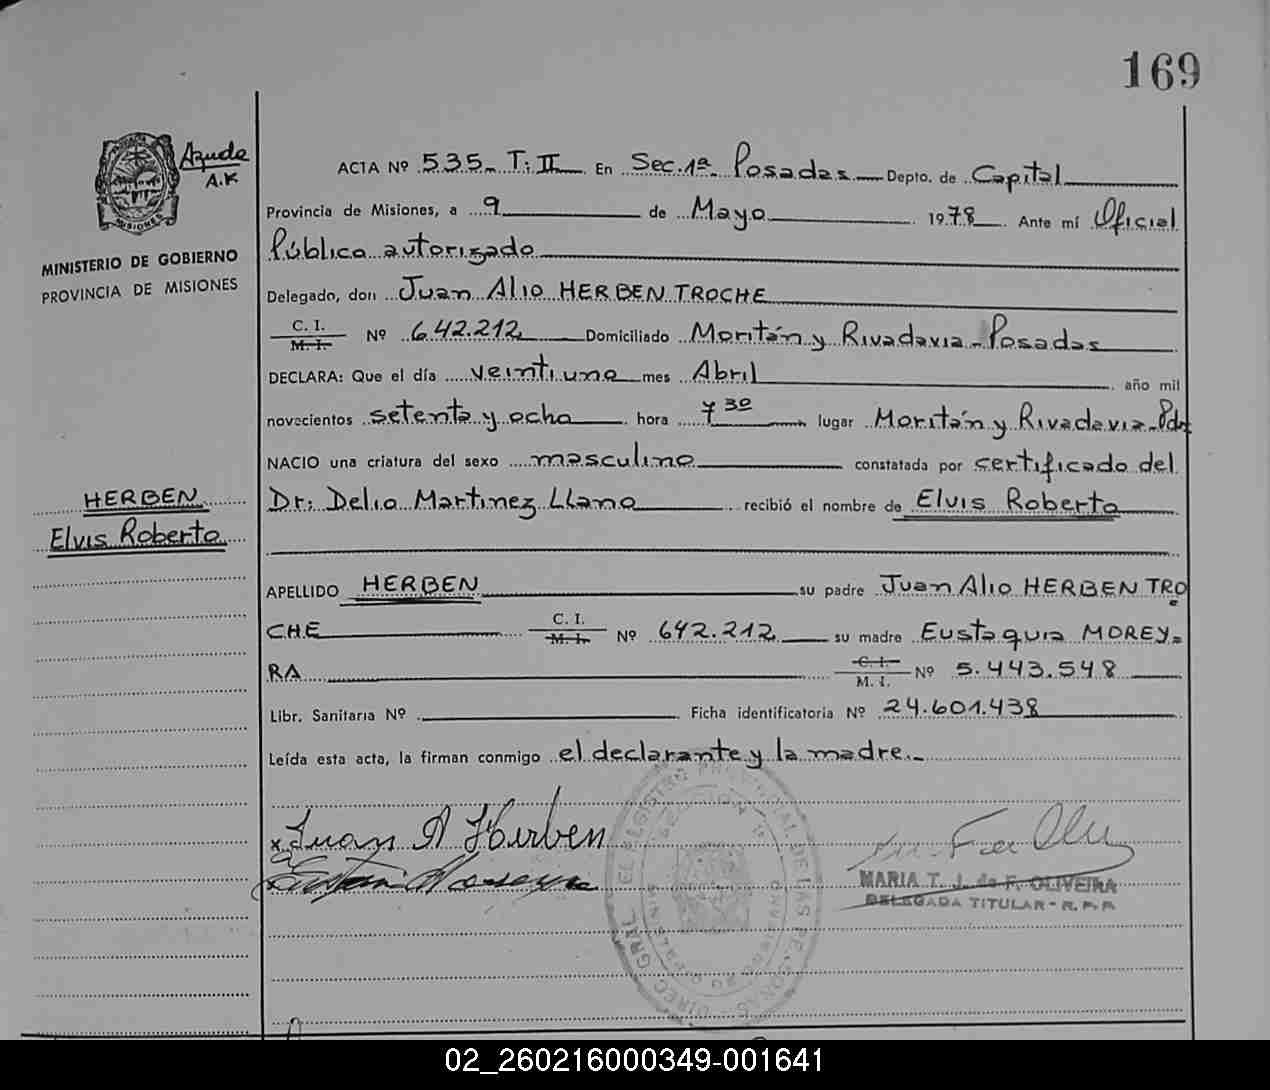 169
Ayuda
A.K
MINISTERIO DE GOBIERNO
PROVINCIA DE MISIONES
ACTA Nº 535- T: II En Sec. 1ª Posadas Depto. de Capital
Provincia de Misiones, a 9 de Mayo 1978 Ante mí Oficial
Público autorizado
Delegado, don Juan Alio HERBEN TROCHE
C. I.
M. I. Nº 642.212 Domiciliado Moritán y Rivadavia - Posadas
DECLARA: Que el día veintiuno mes Abril año mil
novecientos setenta y ocho hora 7 30 lugar Moritán y Rivadavia - Pdas
NACIO una criatura del sexo masculino constatada por certificado del
Dr: Delio Martinez Llano recibió el nombre de Elvis Roberto
HERBEN
Elvis Roberto
APELLIDO HERBEN su padre Juan Alio HERBEN TRO
CHE C. I.
M. I. Nº 642.212 su madre Eustaquia MOREY-
RA C. I.
M. I. Nº 5.443.548
Libr. Sanitaria Nº Ficha identificatoria Nº 24.601.438
Leída esta acta, la firman conmigo el declarante y la madre.-
x Juan A Herben
MARIA T. J. de F. OLIVEIRA
DELEGADA TITULAR - R. P. P.
02_260216000349-001641